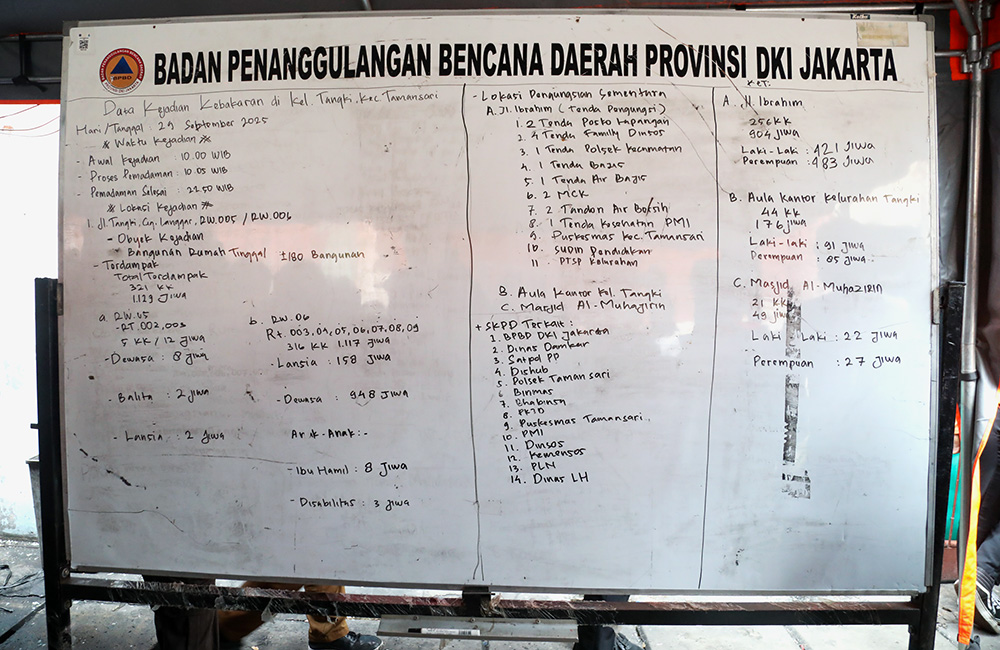 BPBD
BADAN PENANGGULANGAN BENCANA DAERAH PROVINSI DKI JAKARTA
Data Kejadian Kebakaran di Kel. Tangki, Kec Tamansari
Hari/Tanggal : 29 September 2025
* Waktu Kejadian *
- Awal Kejadian : 10.00 WIB
- Proses Pemadaman : 10.05 WIB
- Pemadaman Selesai : 22.50 WIB
* Lokasi Kejadian *
1. Jl. Tangki, Gg. Langgar, RW.005 / RW.006
- Obyek Kejadian
Bangunan Rumah Tinggal ±180 Bangunan
- Terdampak
Total Terdampak
321 KK
1.129 Jiwa
a. RW.05
- RT.002,003
5 KK / 12 Jiwa
- Dewasa : 8 Jiwa
- Balita : 2 Jiwa
- Lansia : 2 Jiwa
b. RW.06
Rt. 003,04,05,06,07,08,09
316 KK 1.117 Jiwa
- Lansia : 158 Jiwa
- Dewasa : 948 Jiwa
Anak-Anak : -
- Ibu Hamil : 8 Jiwa
- Disabilitas : 3 Jiwa
- Lokasi Pengungsian Sementara
A. Jl. Ibrahim (Tenda Pengungsi)
1. 2 Tenda Posko Lapangan
2. 4 Tenda Family Dinsos
3. 1 Tenda Polsek Kecamatan
4. 1 Tenda Bazis
5. 1 Tenda Air Bazis
6. 2 MCK
7. 2 Tandon Air Bersih
8. 1 Tenda Kesehatan PMI
9. Puskesmas Kec. Tamansari
10. SUDIN Pendidikan
11. PTSP Kelurahan
B. Aula Kantor Kel. Tangki
C. Masjid Al-Muhajirin
+ SKPD Terkait :
1. BPBD DKI Jakarta
2. Dinas Damkar
3. Satpol PP
4. Dishub
5. Polsek Taman sari
6 Binmas
7. Bhabinsa
8. PKTD
9. Puskesmas Tamansari
10. PMI
11. Dinsos
12. Kemensos
13. PLN
14. Dinas LH
KET.
A. Jl. Ibrahim
256 KK
904 Jiwa
Laki-Laki : 421 Jiwa
Perempuan : 483 Jiwa
B. Aula Kantor Kelurahan Tangki
44 KK
176 Jiwa
Laki-laki : 91 Jiwa
Perempuan : 85 Jiwa
C. Masjid Al-Muhazirin
21 KK
49 Jiwa
Laki-Laki : 22 Jiwa
Perempuan : 27 Jiwa